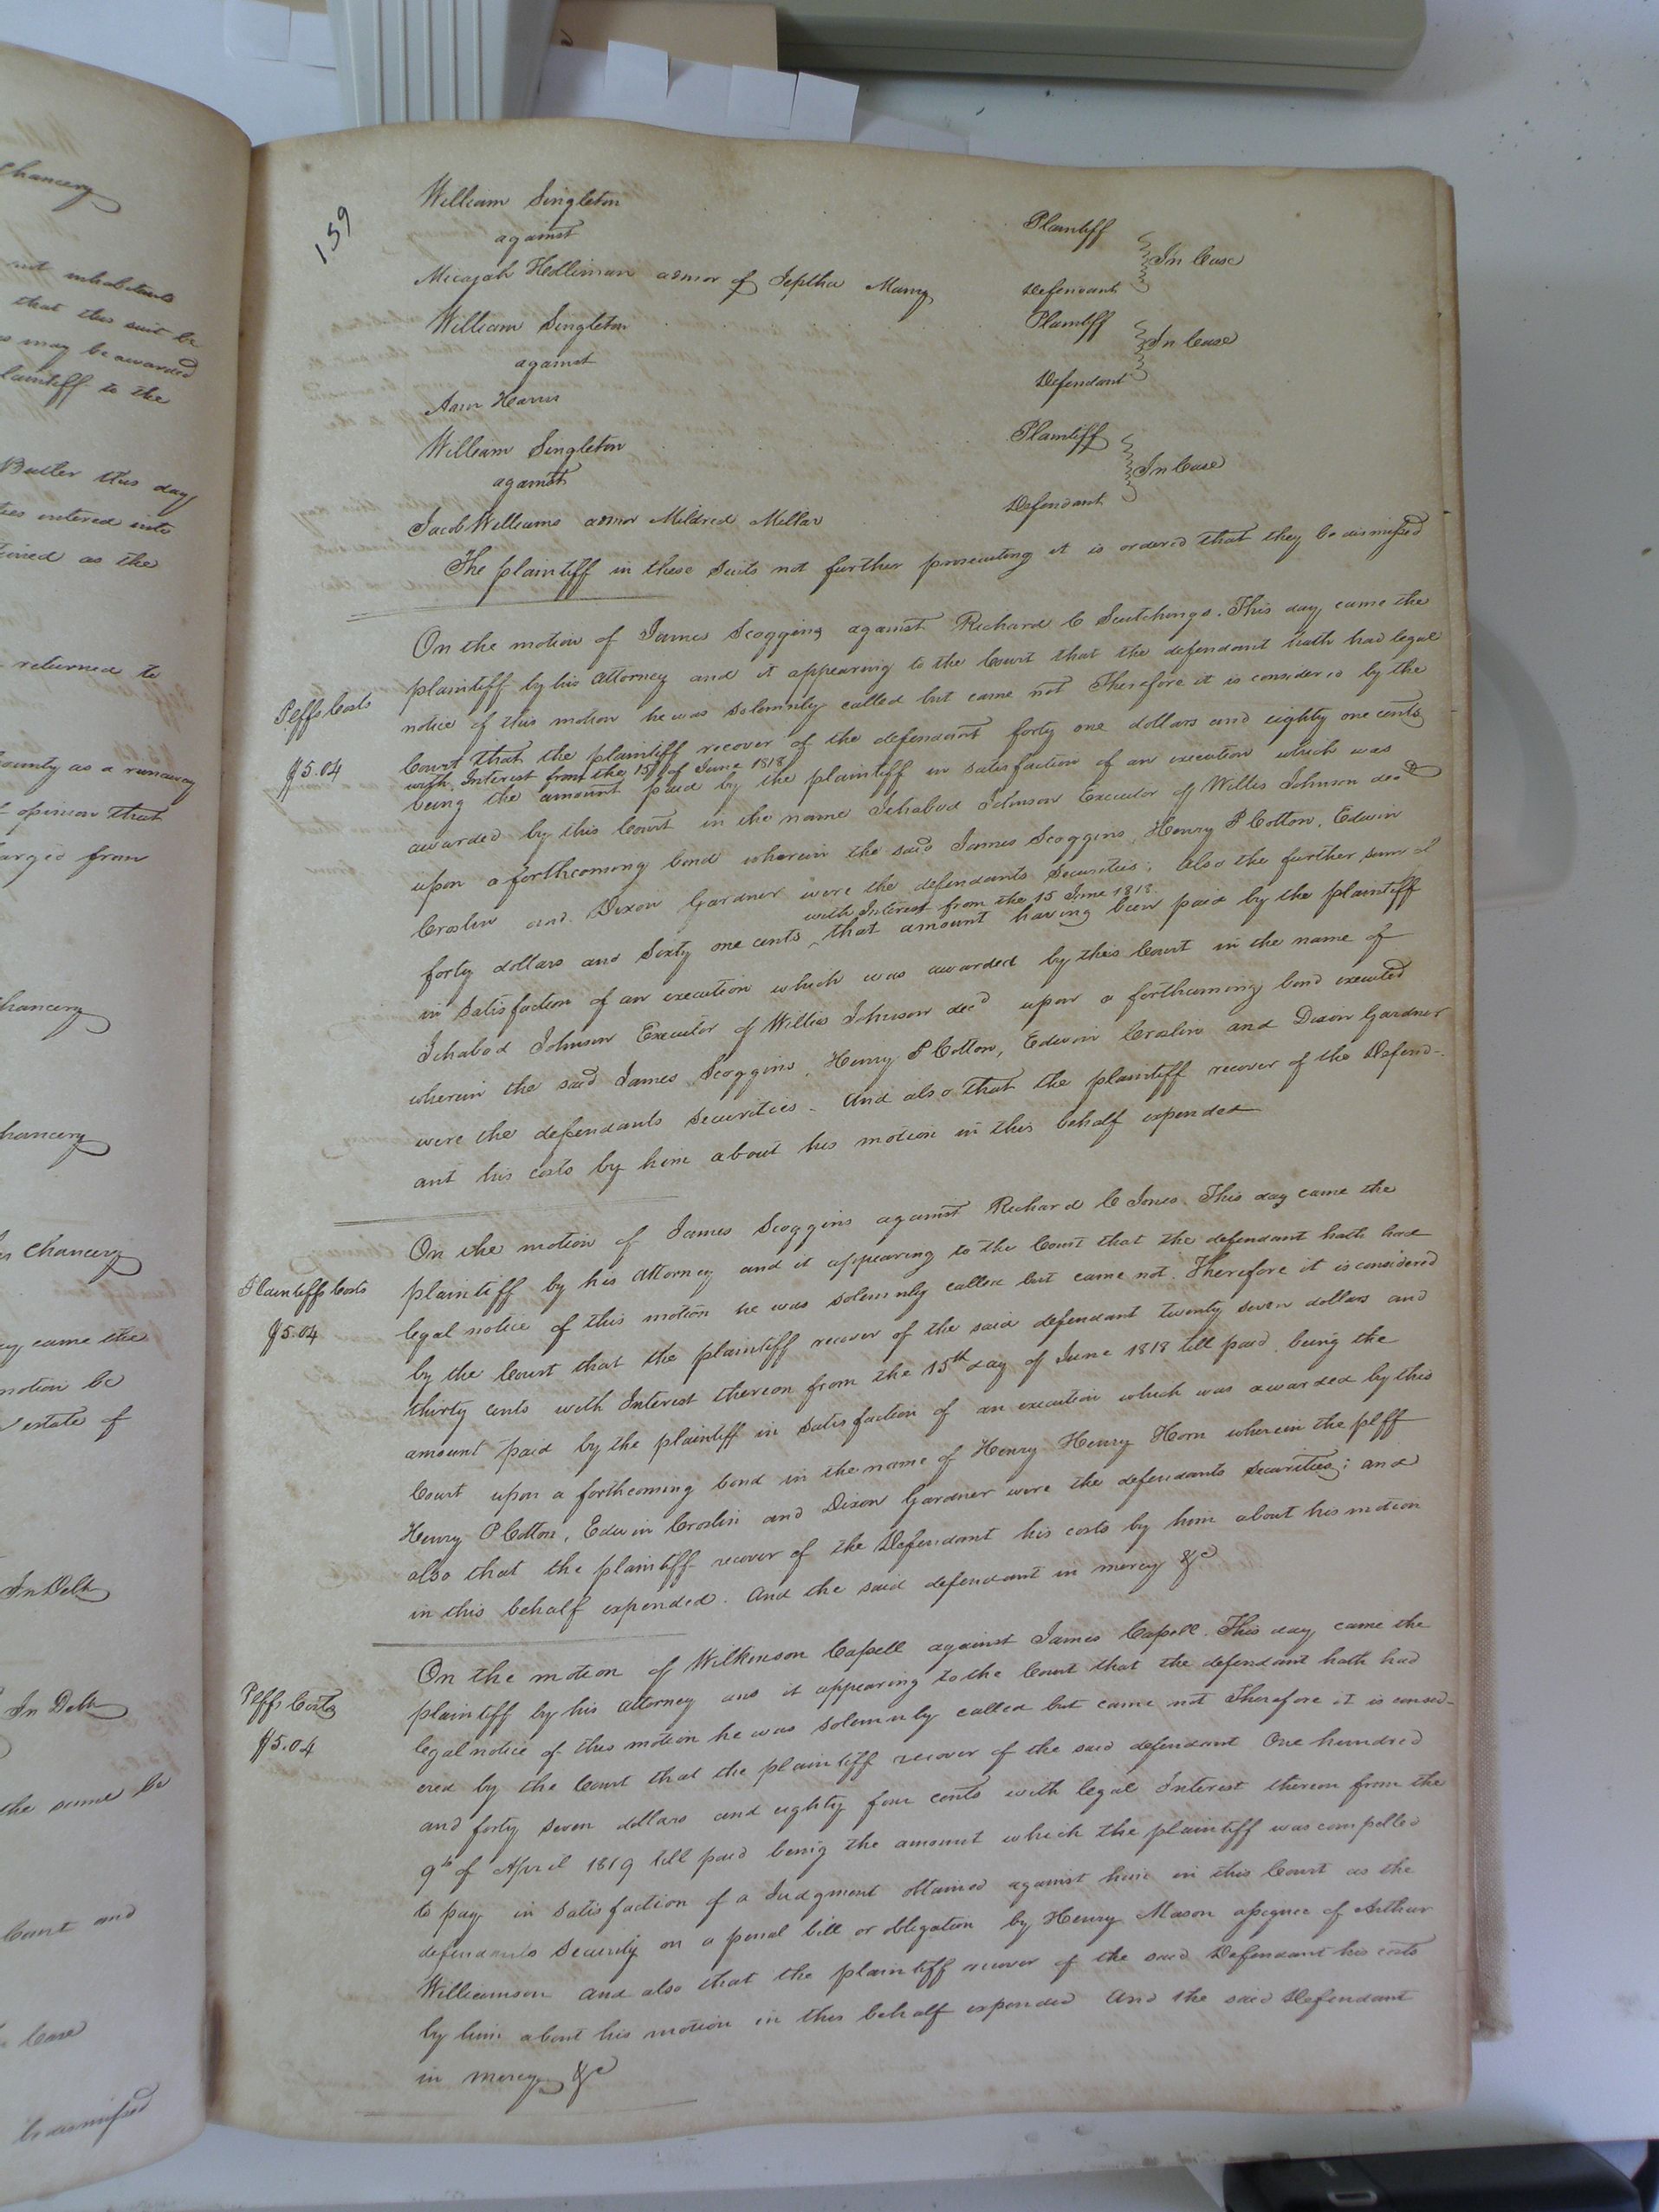 Chancery
not inhabitants
that this suit be
may be awarded
plaintiff to the
Butler this day
ties entered into
as the
returned to
County as a runaway
opinion that
arged from
Chancery
Chancery
Chancery
came the
motion be
estate of
In Debt
In Debt
the same be
Court and
Case
be dismissed
159
William Singleton Plaintiff
against In Case
Micajah Holliman admor of Jeptha Defendant
William Singleton Plaintiff
against In Case
Ann Harris Defendant
William Singleton Plaintiff
against In Case
Jacob Williams admor Mildred Millar Defendant
The plaintiff in these Suits not further prosecuting it is ordered that they be dismissed
On the motion of James Scoggins against Richard C This day came the
plaintiff by his Attorney and it appearing to the Court that the defendant hath had legal
Plffs Costs
notice of this motion he was Solemnly called but came not Therefore it is considered by the
$5.04
Court that the plaintiff recover of the defendant forty one dollars and eighty one cents
with Interest from the 15 of June 1818
being the amount paid by the plaintiff in Satisfaction of an execution which was
awarded by this Court in the name Ichabod Johnson Executor of Willis Johnson decd
upon a forthcoming bond wherein the said James Scoggins, Henry P Cotton, Edwin
Croslin and Dixon Gardner were the defendants Securities; Also the further sum of
with Interest from the 15 June 1818
forty dollars and Sixty one cents ^ that amount having been paid by the plaintiff
in Satisfaction of an execution which was awarded by this Court in the name of
Ichabod Johnson Executor of Willis Johnson decd upon a forthcoming bond executed
wherein the said James Scoggins, Henry P Cotton, Edwin Croslin and Dixon Gardner
were the defendants Securities - And also that the plaintiff recover of the Defend-
ant his costs by him about his motion in this behalf expended
On the motion of James Scoggins against Richard C Jones. This day came the
plaintiff by his Attorney and it appearing to the Court that the defendant hath had
Plaintiffs Costs
legal notice of this motion he was Solemnly called but came not. Therefore it is considered
$5.04
by the Court that the plaintiff recover of the said defendant twenty seven dollars and
thirty cents with Interest thereon from the 15th day of June 1818 till paid, being the
amount paid by the plaintiff in Satisfaction of an execution which was awarded by this
Court upon a forthcoming bond in the name of Henry Henry Horn wherein the plff
Henry P Cotton, Edwin Croslin and Dixon Gardner were the defendants Securities; and
also that the plaintiff recover of the Defendant his costs by him about his motion
in this behalf expended. And the said defendant in mercy &c
On the motion of Wilkinson Capell against James Capell. This day came the
plaintiff by his Attorney and it appearing to the Court that the defendant hath had
Plffs Costs
legal notice of this motion he was Solemnly called but came not Therefore it is consid-
$5.04
ered by the Court that the plaintiff recover of the said defendant One hundred
and forty Seven dollars and eighty four cents with legal Interest thereon from the
9th of April 1819 till paid being the amount which the plaintiff was compelled
to pay in Satisfaction of a Judgment obtained against him in this Court as the
defendants Security on a penal bill or obligation by Henry Mason assignee of Arthur
Williamson and also that the plaintiff recover of the said Defendant his costs
by him about his motion in this behalf expended And the said Defendant
in mercy &c